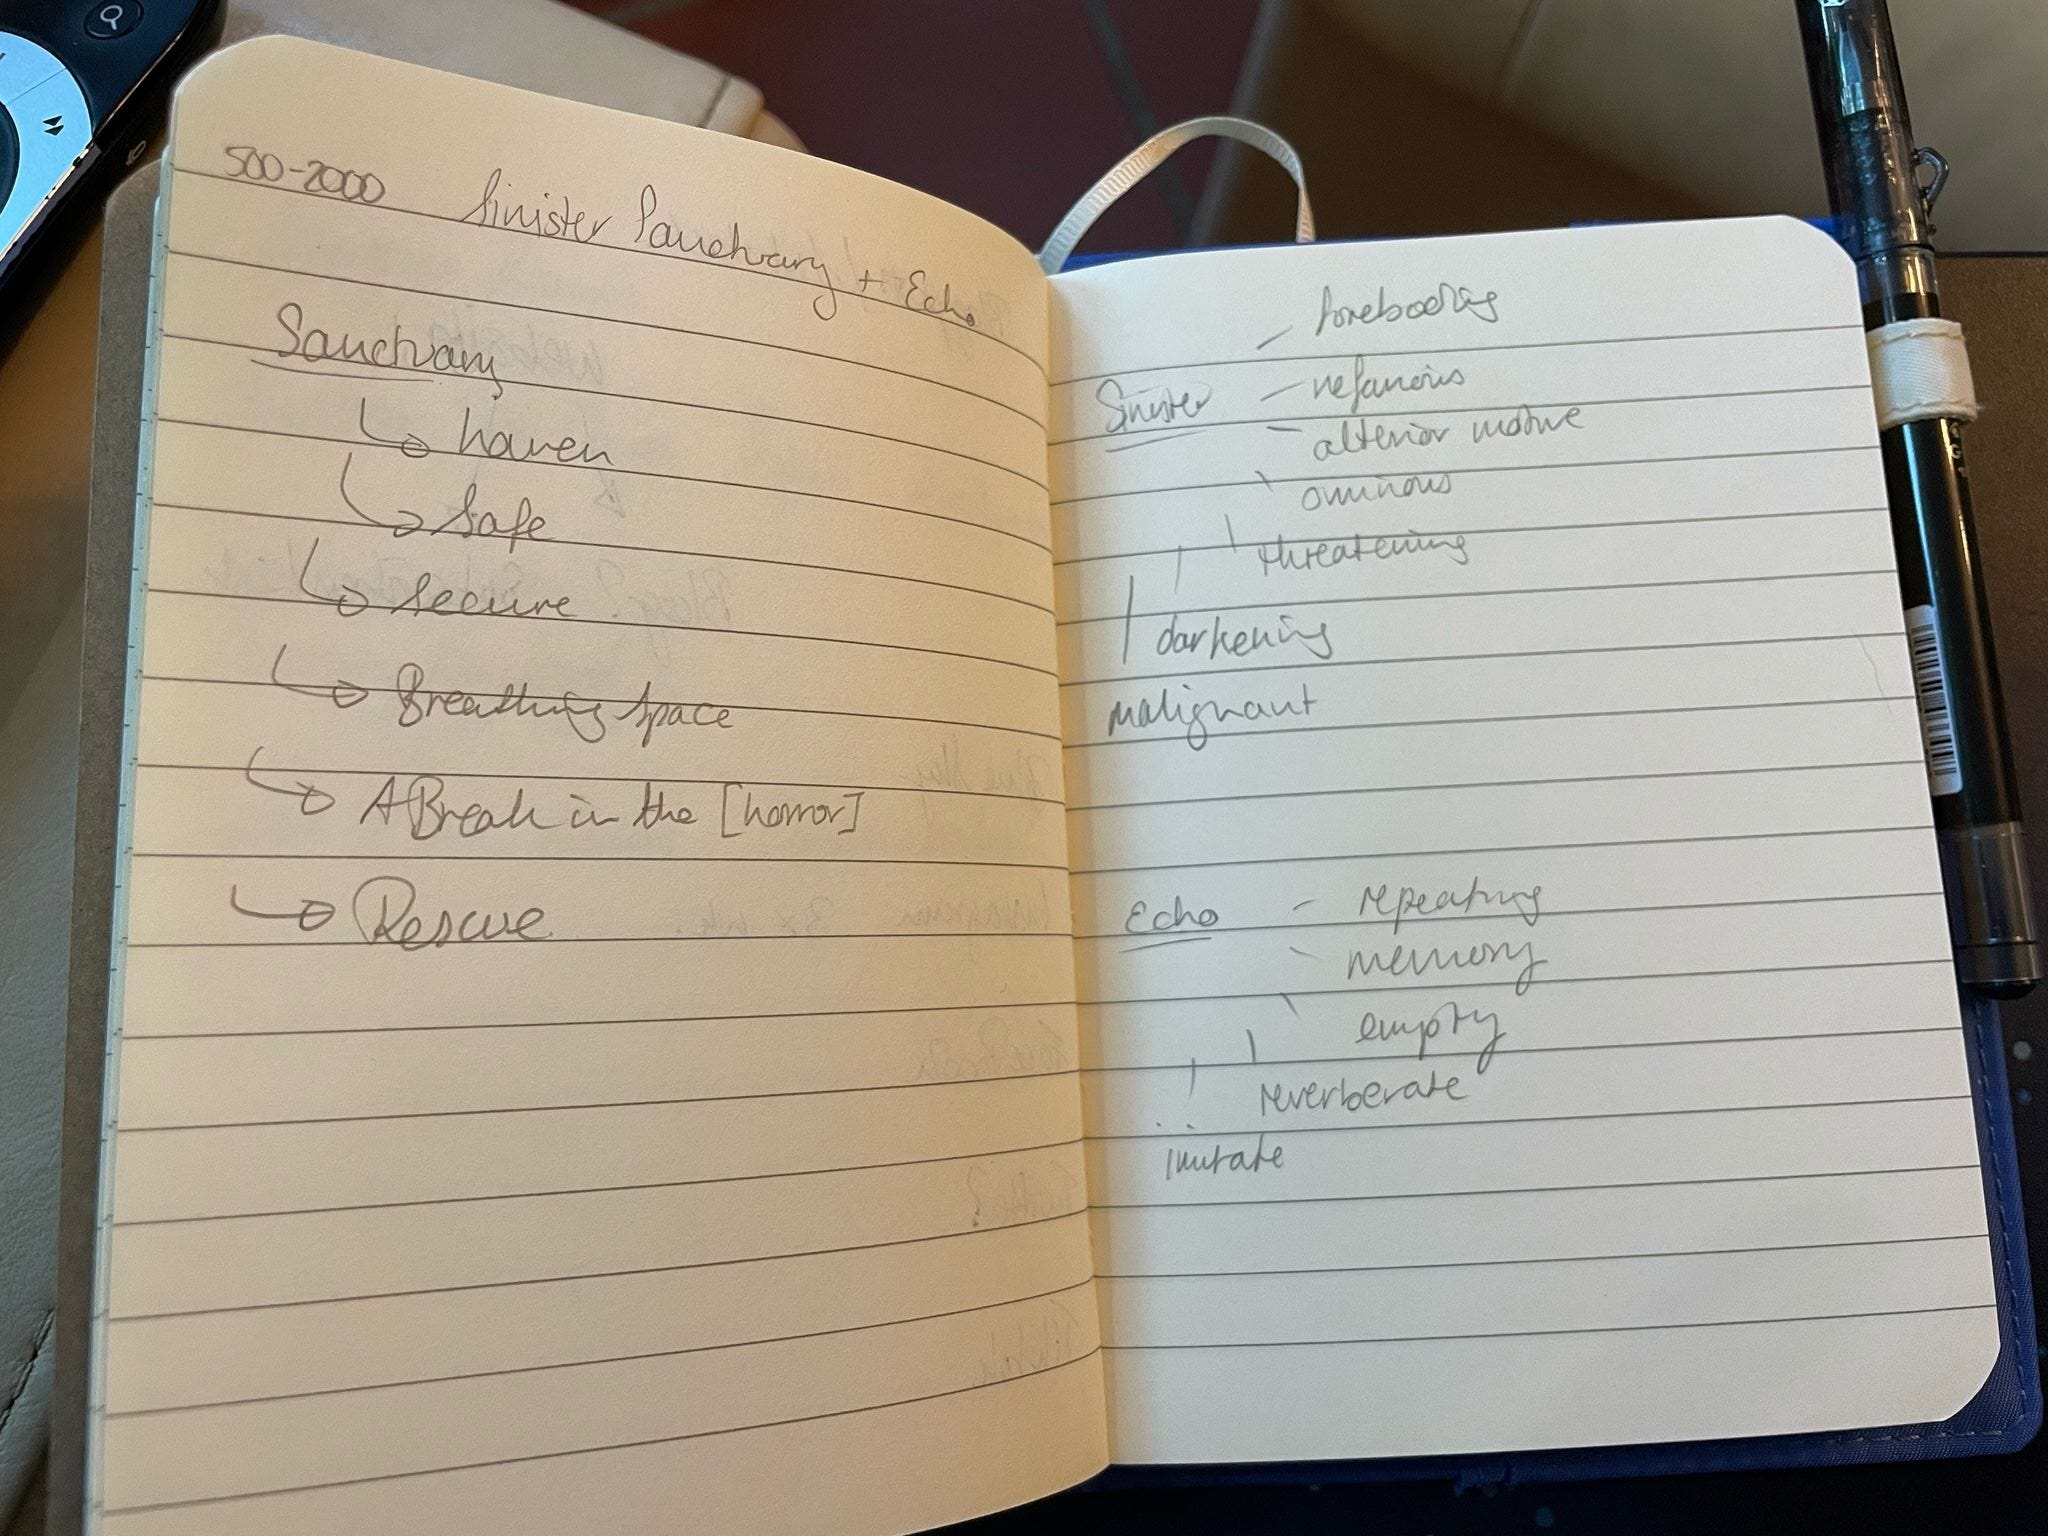 500-2000 Sinister Sanctuary + Echo
Sanctuary
haven
safe
secure
Breathing space
A Break in the [horror]
Rescue
foreboding
Sinister
nefarious
alterior motive
ominous
threatening
darkening
malignant
Echo
repeating
memory
empty
reverberate
imitate